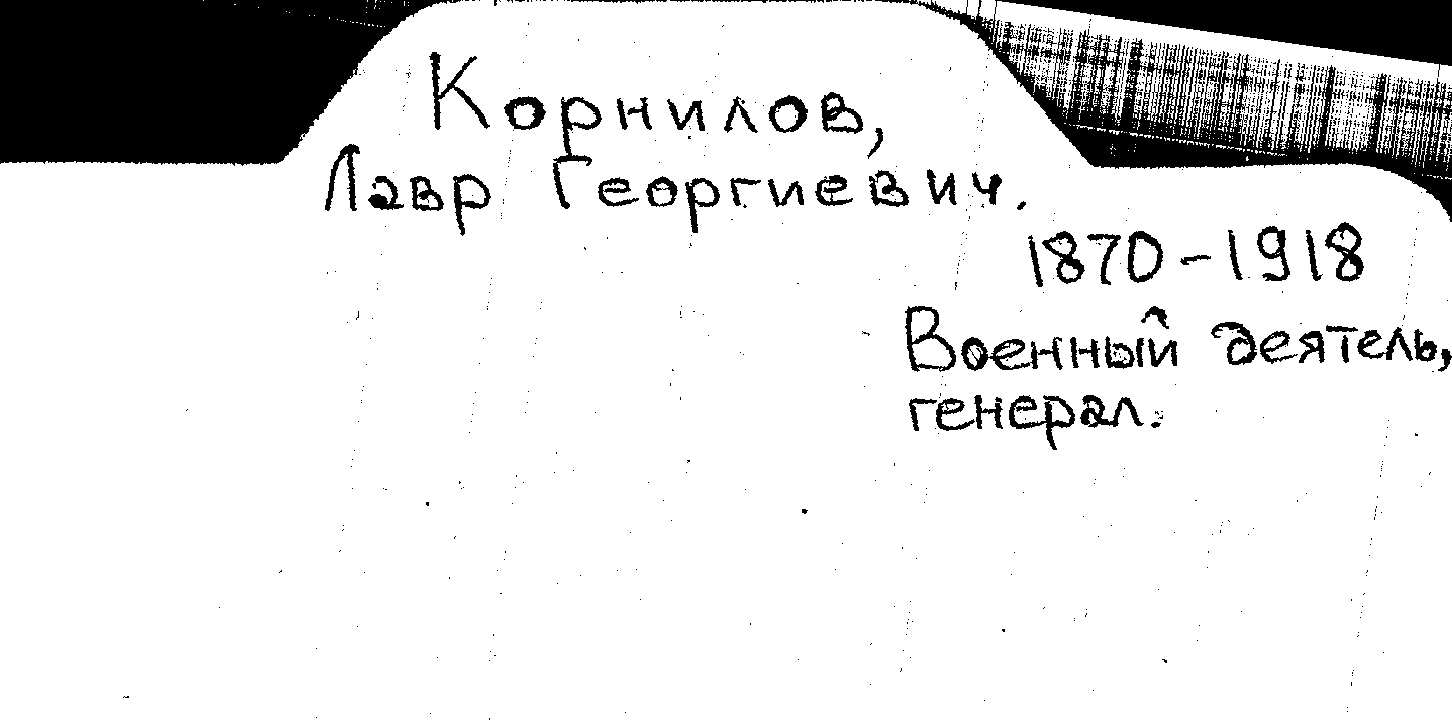 Корнилов,
Лавр Георгиевич.
1870-1918
Военный деятель,
генерал.